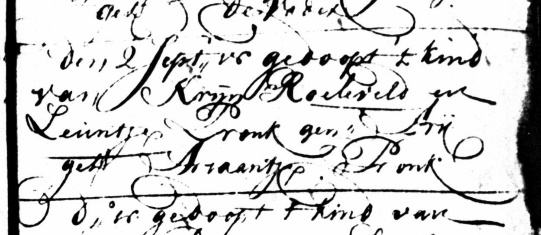 get de vader
den 2 Sept is gedoopt t kind
van Krijn Roeleveld en
Leuntje Pronk gen Arij
get Ariaantje Pronk
d is gedoopt t kind van